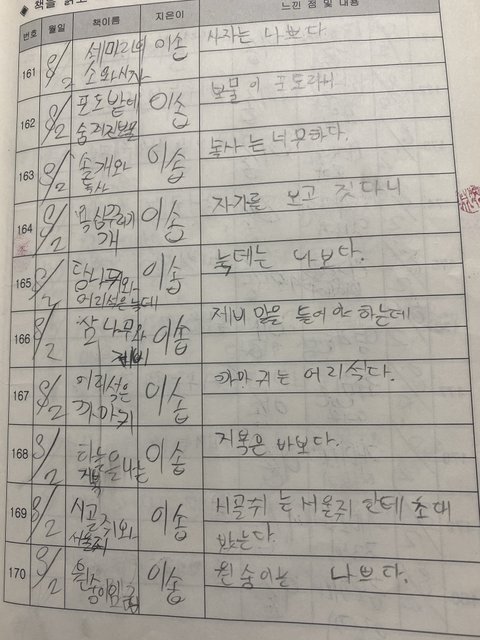 ◆ 책을 읽고
번호 월일 책이름 지은이 느낀 점 및 내용
161 8/2 세마리의 소와사자 이솝 사자는 나쁘다.
162 8/2 포도밭에 숨겨진보물 이솝 보물이 포도라니
163 8/2 솔개와 독사 이솝 독사는 너무하다.
164 8/2 욕심꾸러기 개 이솝 자기를 보고 짓다니
165 8/2 당나귀와 어리석은늑대 이솝 늑데는 나보다.
166 8/2 삼나무와 제비 이솝 제비 말을 들어야 하는데
167 8/2 어리석은 까마귀 이솝 까마귀는 어리석다.
168 8/2 하늘을나는 거북 이솝 지북은 바보다.
169 8/2 시골쥐와 서울쥐 이솝 시골쥐는 서울쥐 한테 초대
받는다.
170 8/2 원숭이임금 이솝 원숭이는 나쁘다.